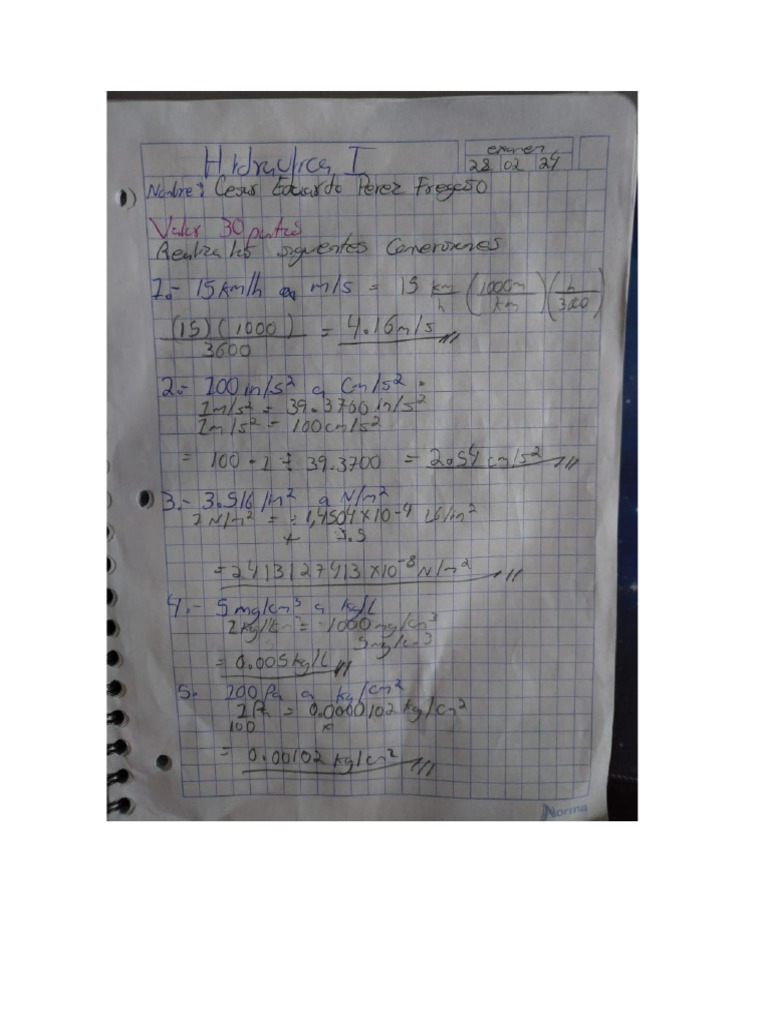 Hidraulica I
examen
28 02 24
Nombre: Cesar Eduardo Perez Fregoso
Valor 30 puntos
Realiza las siguientes Conversiones
1.- 15 km/h a m/s = 15 km/h (1000m/km)(h/3600)
(15)(1000)/3600 = 4.16 m/s
2.- 100 in/s² a Cm/s²
1m/s² = 39.3700 in/s²
1m/s² = 100 cm/s²
= 100 · 1 ÷ 39.3700 = 2.54 cm/s²
3.- 3.5 lb/in² a N/m²
1 N/m² = 1,4504 x 10⁻⁴ lb/in²
x 3.5
= 2413127413 x10⁻⁸ N/m²
4.- 5 mg/cm³ a kg/L
1 kg/ = 1000 mg/cm³
5 mg/cm³
= 0.005 kg/L
5. 100 Pa a kg/cm²
1 Pa = 0.0000102 kg/cm²
100 x
= 0.00102 kg/cm²
Norma